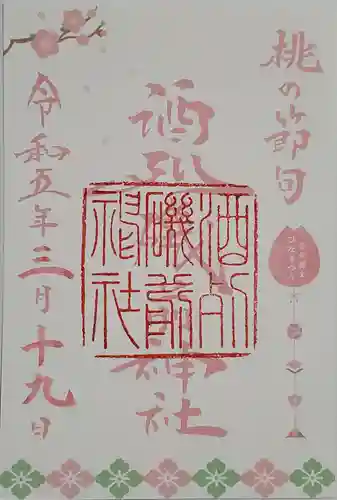 桃の節句
ひなまつり
酒列磯前神社
酒列
磯前
神社
令和五年三月十九日